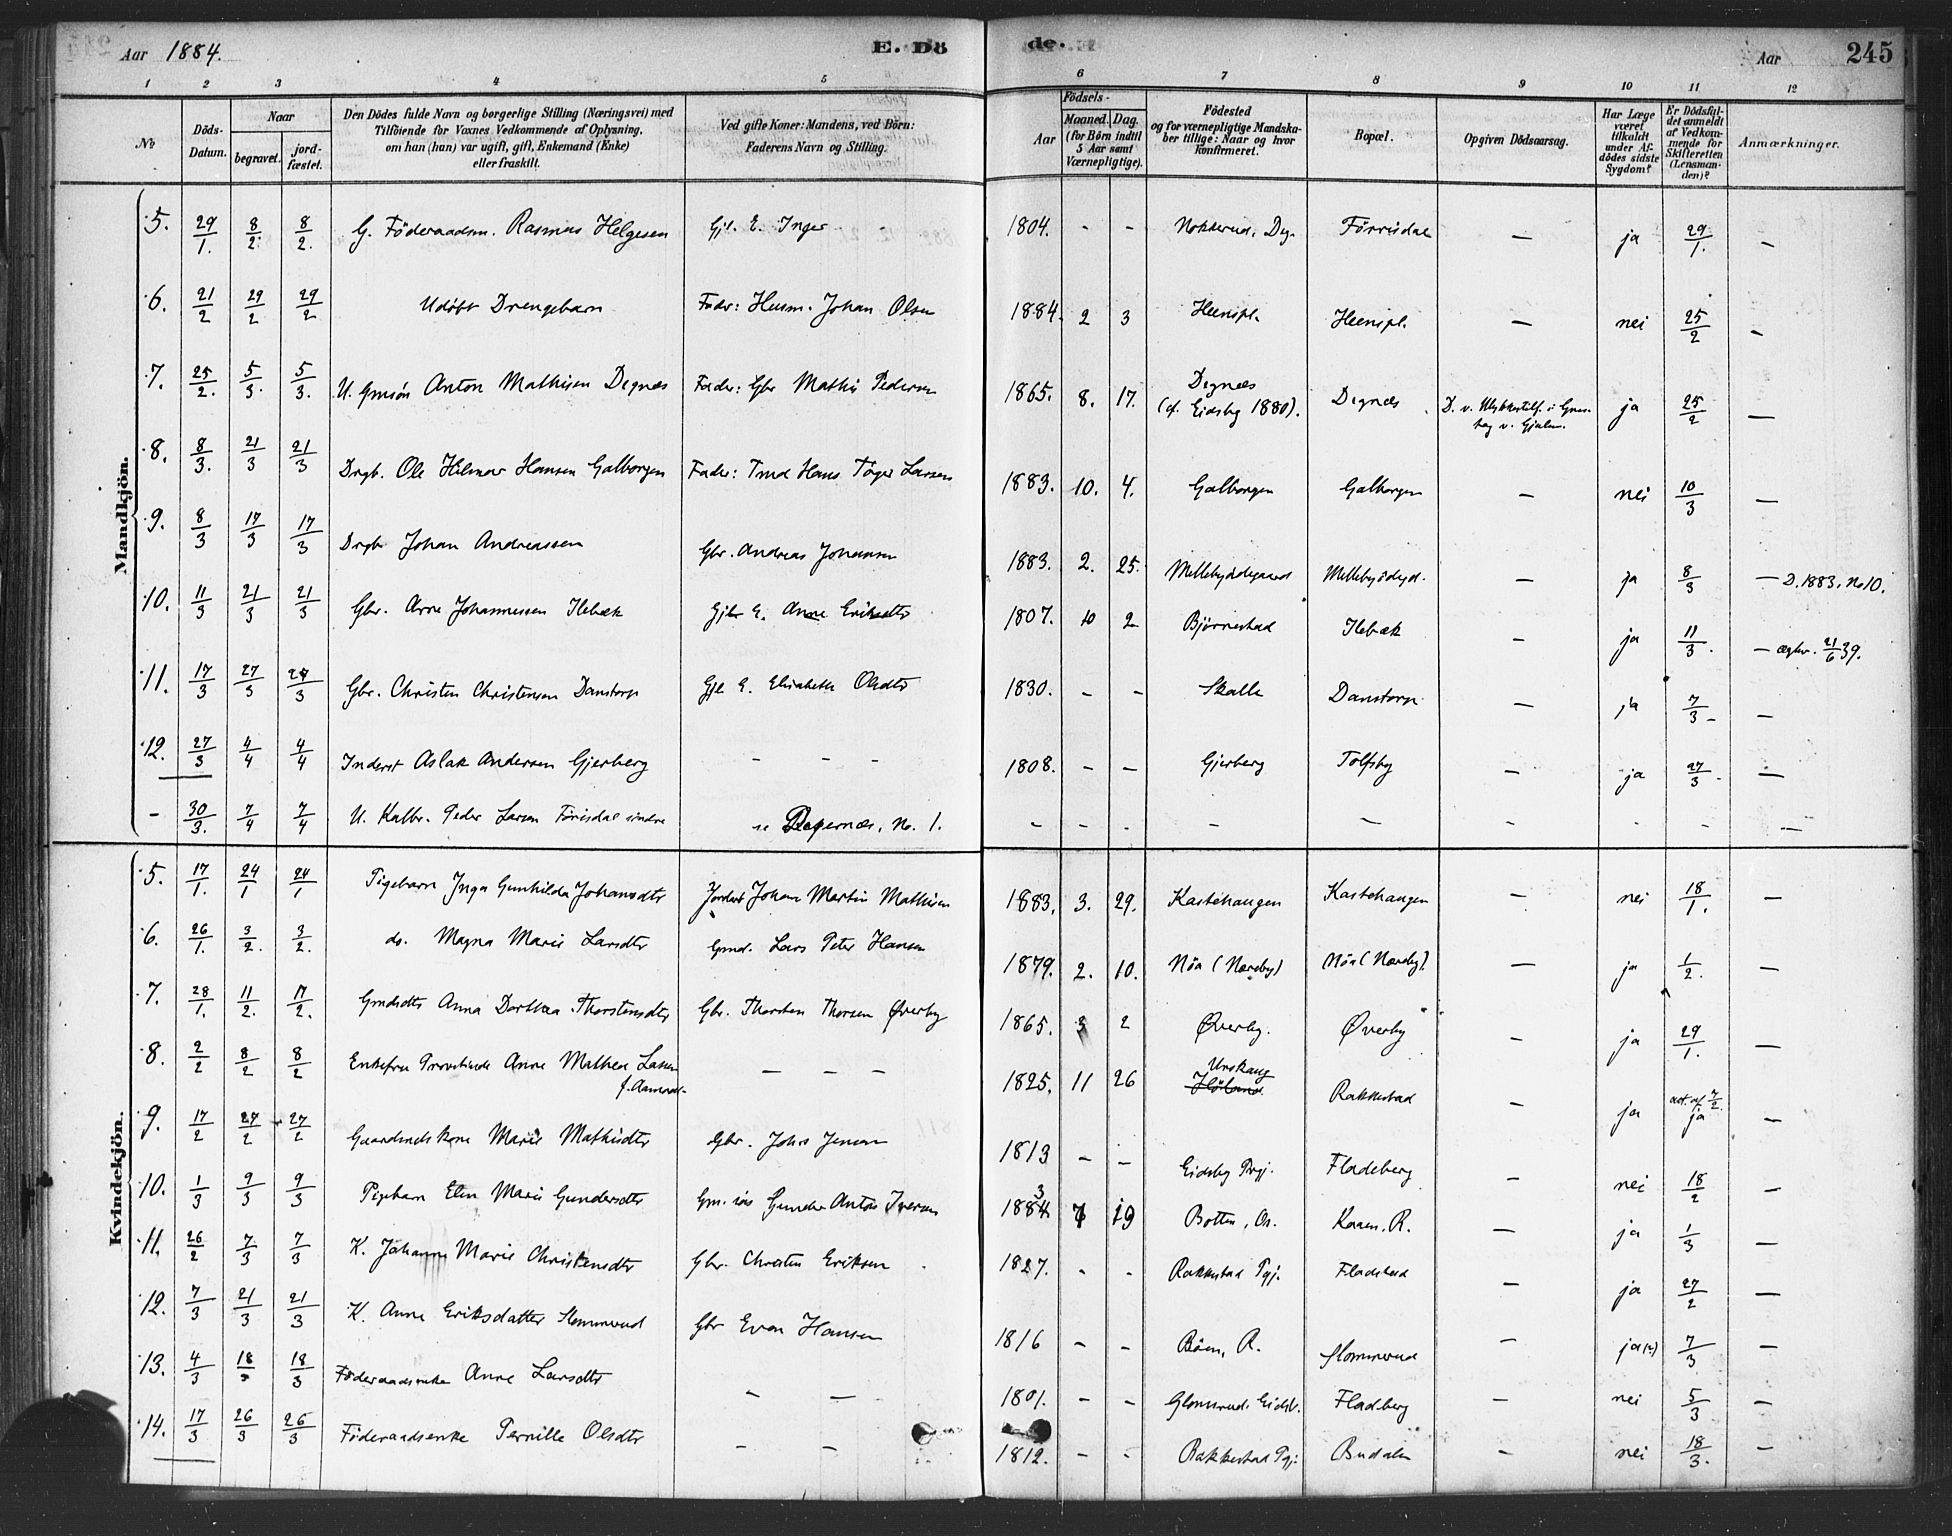 Aar 1884.
E. Dö
de.
Aar
245
1 2 3 4 5 6 7 8 9 10 11 12
No
Döds-Datum.
Naar
begravet.
jord-fæstet.
Den Dödes fulde Navn og borgerlige Stilling (Næringsvei) med
Tilföiende for Voxnes Vedkommende af Oplysning,
om han (hun) var ugift, gift, Enkemand (Enke)
eller fraskilt.
Ved gifte Koner: Mandens, ved Börn:
Faderens Navn og Stilling.
Födsels-
Aar
Maaned. Dag.
(for Börn indtil
5 Aar samt
Værnepligtige).
Födested
og for værnepligtige Mandska-
ber tillige: Naar og hvor
konfirmeret.
Bopæl.
Opgiven Dödsaarsag.
Har Læge
været
tilkaldt
under Af-
dödes sidste
Sygdom?
Er Dödsfal-
det anmeldt
af Vedkom-
mende for
Skifteretten
(Lensman-
den)?
Anmærkninger.
Mandkjön.
5. 29/1. 8/2. 8/2. G. Föderaadsm. Rasmus Helgesen Gjl. E. Inger - 1804. - - Nokkerud, Deg. Förrisdal — ja 29/1. —
6. 21/2 29/2 29/2 Udöbt Drengebarn Fader: Husm. Johan Olsen 1884. 2 3 Heenspl. Heenspl. — nei 25/2 —
7. 25/2. 5/3. 5/3. U. Gmsön Anton Mathisen Degnæs Fader: Gbr Mathis Pedersen 1865. 8. 17. Degnæs (cf. Eidsby 1880). Degnæs D. v. Ulykkestilf. i v. ja 25/2 —
8. 8/3. 21/3 21/3 Drgb. Ole Hilmar Hansen Galborgen Fader: Hans Töger Larsen 1883. 10. 4. Galborgen Galborgen — nei 10/3 —
9. 8/3 17/3 17/3 Drgb Johan Andreassen Gbr. Andreas Johansen 1883. 2. 25. Mellebyödegaard Mellebyödegd. — ja 8/3 — D. 1883, No 10.
10. 11/3 21/3 21/3 Gbr. Arne Johannessen Ilebæk Gjbr E. Anne Eriksdtr 1807. 10 2 Björnestad Ilebæk — ja 11/3. — ægtev. 21/6 39.
11. 17/3 27/3 27/3 Gbr. Christen Christensen Danstorp Gjl E. Elisabeth Olsdtr 1830. - - Skalle Danstorp — ja 7/3 —
12. 27/3 4/4 4/4 Inderst Aslak Andersen Gjerberg - - - 1808. - — Gjerberg Tolfsby — ja 27/3. —
- 30/3. 7/4 7/4 U. Kalbr. Peder Larsen Förisdal söndre se Degernæs, No. 1. - - - - — - - - —
Kvindekjön.
5. 17/1. 24/1 24/1 Pigebarn Inga Gunhilda Johansdtr Inderst Johan Martin Mathisen 1883. 3. 29. Kastehaugen Kastehaugen — nei 18/1. —
6. 26/1. 3/2. 3/2. do. Magna Marie Larsdtr Gmd. Lars Peter Hansen 1879. 2. 10. Nöa (Næreby) Nöa (Næreby). — ja 1/2. —
7. 28/1. 11/2. 11/2. Gmdsdtr Anna Dorthea Thorstensdtr Gbr. Thorsten Thorsen Øverby 1865. 3 2 Øverby. Øverby — ja 29/1. —
8. 2/2 8/2 8/2 Enkefru Provstinde Anne Mathea Lassen — - — 1825. 11 26 Urskoug Höland Rakkestad — ja 7/2. ja —
9. 17/2 27/2 27/2 Gaardmdskone Marie Mathisdtr Gbr. Johs Jensen 1813 - - Eidsby Prgj. Fladeberg — nei 18/2 —
10. 1/3 9/3 9/3 Pigebarn Elen Marie Gundersdtr Gm. sön Gunder Anton Iversen 1883 7 19 Botten, Os. Kaaen, R. — ja 1/3 —
11. 26/2 7/3 7/3 K. Johanne Marie Christensdtr Gbr. Christen Eriksen 1827. - - Rakkestad Pgj. Fladstad — ja 27/2 —
12. 7/3 21/3 21/3 K. Anne Eriksdatter Slommerud Gbr Even Hansen 1816 - - Böen, R. Slommerud — ja(?) 7/3 —
13. 4/3 18/3 18/3 Föderaadsenke Anne Larsdtr - — 1801. - - Glomsrud, Eidsb. Fladberg — nei 5/3 —
14. 17/3 26/3 26/3 Föderaadsenke Pernille Olsdtr - - 1812. - - Rakkestad Pgj. Budalen - nei 18/3. —